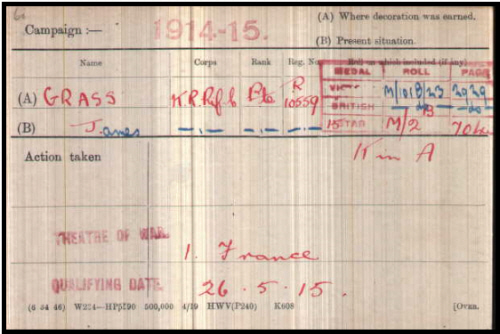 (A) Where decoration was earned.
Campaign :— 1914-15.
(B) Present situation.
Name Corps Rank Reg. No. Roll on which included (if any)
MEDAL ROLL PAGE
(A) GRASS K.R.Rif.C Pte R 10559 VICTORY
BRITISH
(B) James —.— —.— —.— 15 STAR M/2 B
Action taken K in A
THEATRE OF WAR. 1. France
QUALIFYING DATE. 26.5.15.
(6 34 46) W234—HP5590 500,000 4/19 HWV(P240) K608 [Over.